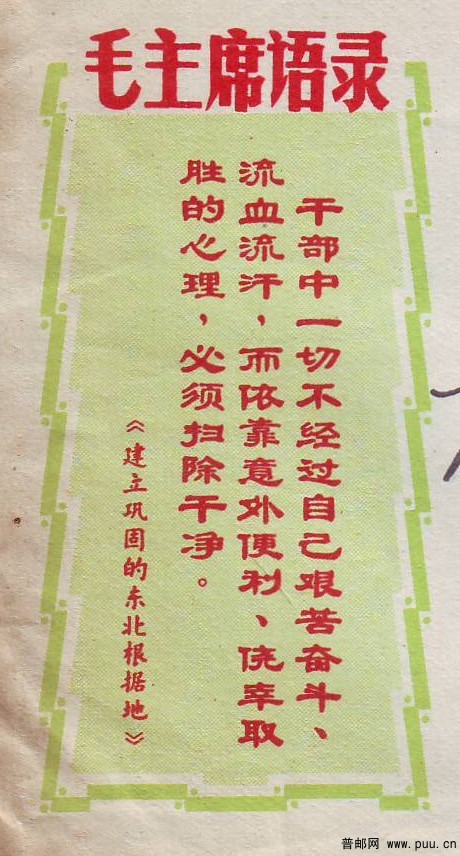 毛主席语录
干部中一切不经过自己艰苦奋斗、
流血流汗，而依靠意外便利、侥幸取
胜的心理，必须扫除干净。
《建立巩固的东北根据地》
普邮网 www.puu.cn